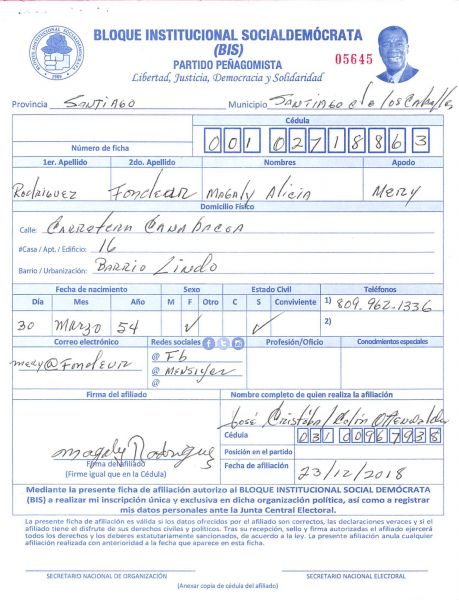 BLOQUE INSTITUCIONAL SOCIALDEMÓCRATA
(BIS)
PARTIDO PEÑAGOMISTA
05645
Libertad, Justicia, Democracia y Solidaridad
Provincia Santiago Municipio Santiago de los Caballeros
Cédula
Número de ficha 001 0271886 3
1er. Apellido 2do. Apellido Nombres Apodo
Rodriguez Fondeur Magaly Alicia Mery
Domicilio Físico
Calle: Carretera Canabacoa
#Casa / Apt. / Edificio: 16
Barrio / Urbanización: Barrio Lindo
Fecha de nacimiento Sexo Estado Civil Teléfonos
Día Mes Año M F Otro C S Conviviente 1) 809-962-1336
30 Marzo 54 ✓ ✓ 2)
Correo electrónico Redes sociales Profesión/Oficio Conocimientos especiales
mery@Fondeur @ Fb
@ Mensiyer
@
Firma del afiliado Nombre completo de quien realiza la afiliación
José Cristóbal Colón
Cédula 031 0096793 8
Magaly Rodriguez
Posición en el partido
Firma del afiliado)
(Firme igual que en la Cédula)
Fecha de afiliación 23/12/2018
Mediante la presente ficha de afiliación autorizo al BLOQUE INSTITUCIONAL SOCIAL DEMÓCRATA
(BIS) a realizar mi inscripción única y exclusiva en dicha organización política, así como a registrar
mis datos personales ante la Junta Central Electoral.
La presente ficha de afiliación es válida si los datos ofrecidos por el afiliado son correctos, las declaraciones veraces y si el afiliado
tiene el disfrute de sus derechos civiles y políticos. Tras su recepción, sello y firma autorizadas el afiliado ejercerá
todos los derechos y los deberes estatutariamente sancionados, de acuerdo a la ley. La presente afiliación anula cualquier
afiliación realizada con anterioridad a la fecha que aparece en esta ficha.
SECRETARIO NACIONAL DE ORGANIZACIÓN SECRETARIO NACIONAL ELECTORAL
(Anexar copia de cédula del afiliado)